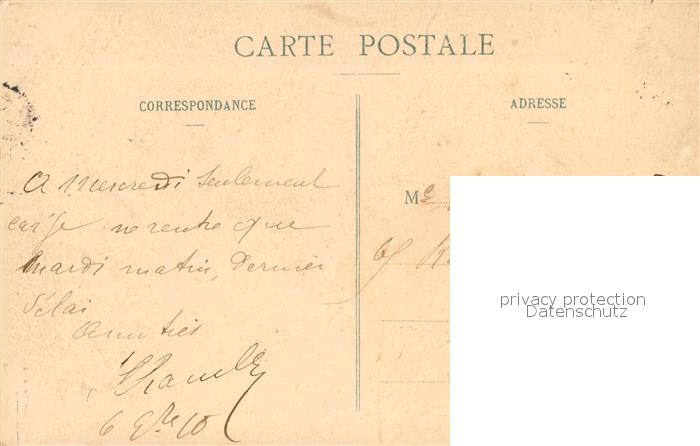 CARTE POSTALE
CORRESPONDANCE
ADRESSE
A mercredi seulement
car je ne rentre que
mardi matin, dernier
délai
Amitiés
Me
privacy protection
Datenschutz